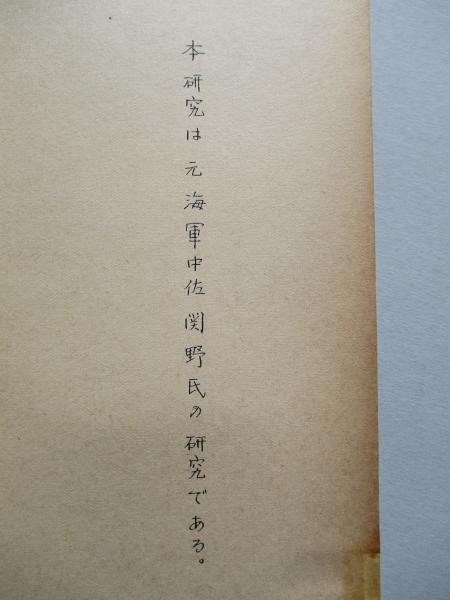 本研究は元海軍中佐関野氏の研究である。